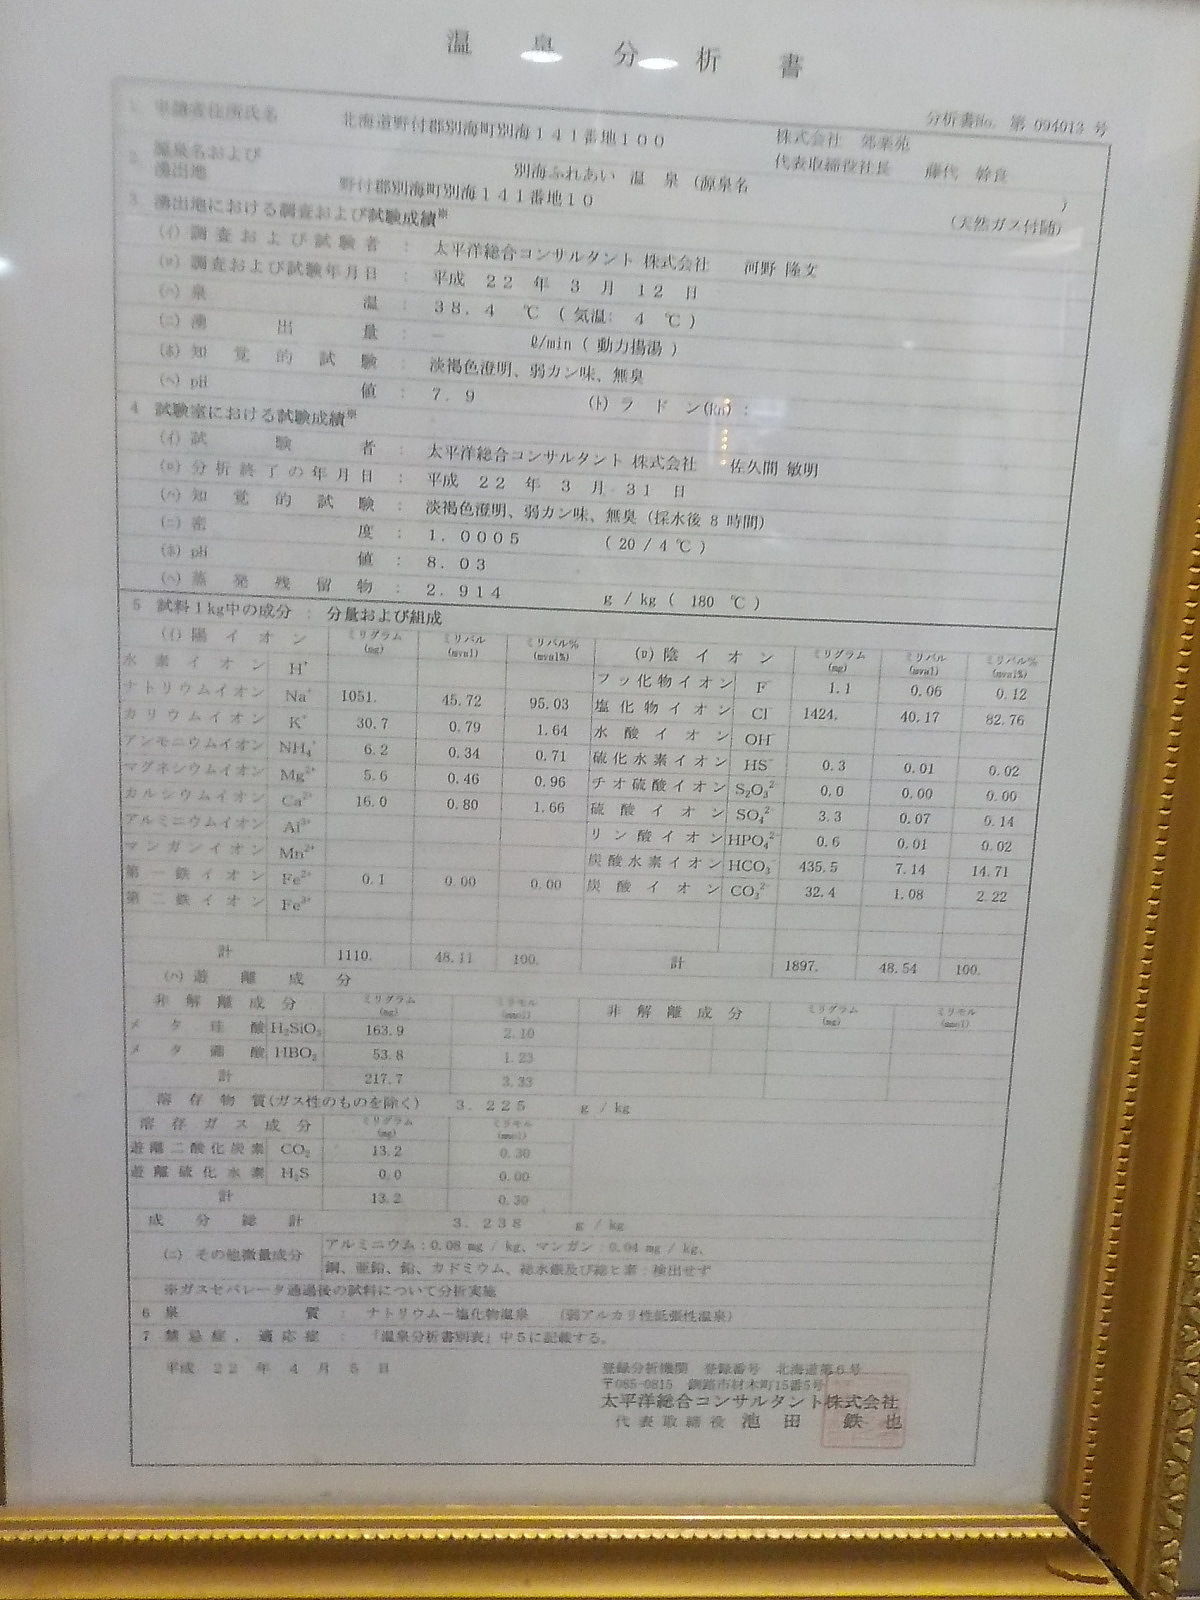 温泉分析書
分析書No. 第 094013 号
1. 申請者住所氏名 北海道野付郡別海町別海141番地100 株式会社 郊楽苑
代表取締役社長 藤代 幹良
2. 源泉名および湧出地 別海ふれあい 温 泉 (源泉名 )
野付郡別海町別海141番地10 (天然ガス付随)
3. 湧出地における調査および試験成績※
(イ) 調査および試験者 : 太平洋総合コンサルタント 株式会社 河野 隆文
(ロ) 調査および試験年月日 : 平成 22 年 3 月 12 日
(ハ) 泉温 : 38.4 ℃ (気温: 4 ℃)
(ニ) 湧出量 : － ℓ/min (動力揚湯)
(ホ) 知覚的試験 : 淡褐色澄明、弱カン味、無臭
(ヘ) pH値 : 7.9 (ト) ラドン(Rn) :
4 試験室における試験成績※
(イ) 試験者 : 太平洋総合コンサルタント 株式会社 佐久間 敏明
(ロ) 分析終了の年月日 : 平成 22 年 3 月 31 日
(ハ) 知覚的試験 : 淡褐色澄明、弱カン味、無臭 (採水後 8 時間)
(ニ) 密度 : 1.0005 (20/4℃)
(ホ) pH値 : 8.03
(ヘ) 蒸発残留物 : 2.914 g/kg (180 ℃)
5 試料1kg中の成分 : 分量および組成
(イ) 陽イオン ミリグラム(mg) ミリバル(mval) ミリバル%(mval%) (ロ) 陰イオン ミリグラム(mg) ミリバル(mval) ミリバル%(mval%)
水素イオン H⁺ フッ化物イオン F⁻ 1.1 0.06 0.12
ナトリウムイオン Na⁺ 1051. 45.72 95.03 塩化物イオン Cl⁻ 1424. 40.17 82.76
カリウムイオン K⁺ 30.7 0.79 1.64 水酸イオン OH⁻
アンモニウムイオン NH₄⁺ 6.2 0.34 0.71 硫化水素イオン HS⁻ 0.3 0.01 0.02
マグネシウムイオン Mg²⁺ 5.6 0.46 0.96 チオ硫酸イオン S₂O₃²⁻ 0.0 0.00 0.00
カルシウムイオン Ca²⁺ 16.0 0.80 1.66 硫酸イオン SO₄²⁻ 3.3 0.07 0.14
アルミニウムイオン Al³⁺ リン酸イオン HPO₄²⁻ 0.6 0.01 0.02
マンガンイオン Mn²⁺ 炭酸水素イオン HCO₃⁻ 435.5 7.14 14.71
第一鉄イオン Fe²⁺ 0.1 0.00 0.00 炭酸イオン CO₃²⁻ 32.4 1.08 2.22
第二鉄イオン Fe³⁺
計 1110. 48.11 100. 計 1897. 48.54 100.
(ハ) 遊離成分
非解離成分 ミリグラム(mg) ミリモル(mmol) 非解離成分 ミリグラム(mg) ミリモル(mmol)
メタ珪酸 H₂SiO₃ 163.9 2.10
メタ硼酸 HBO₂ 53.8 1.23
計 217.7 3.33
溶存物質(ガス性のものを除く) 3.225 g/kg
溶存ガス成分 ミリグラム(mg) ミリモル(mmol)
遊離二酸化炭素 CO₂ 13.2 0.30
遊離硫化水素 H₂S 0.0 0.00
計 13.2 0.30
成分総計 3.238 g/kg
(ニ) その他微量成分 アルミニウム:0.08 mg/kg、マンガン:0.04 mg/kg、
銅、亜鉛、鉛、カドミウム、総水銀及び総ヒ素:検出せず
※ガスセパレータ通過後の試料について分析実施
6 泉質 : ナトリウム－塩化物温泉 (弱アルカリ性低張性温泉)
7 禁忌症, 適応症 : 「温泉分析書別表」中5に記載する。
平成 22 年 4 月 5 日 登録分析機関 登録番号 北海道第6号
〒085-0815 釧路市材木町15番5号
太平洋総合コンサルタント株式会社
代表取締役 池田 鉄也